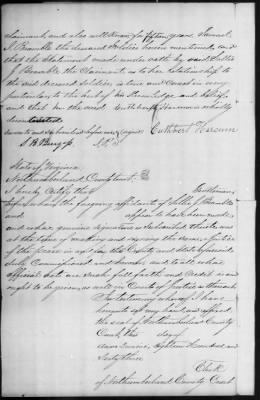 claimant, and also well known for fifteen years Samuel
J Bramble the deceased Soldier herein mentioned, and
that the Statement made under oath by said Setha
J Bramble the Claimant as to her relationship to
the said deceased Soldier is true and correct in every
particular, to the best of his Knowledge and belief,
and that he the said Cuthbert Harcum is wholly
disinterested
Sworn to and subscribed before me
Cuthbert Harcum
S B Burgess J.P.
State of Virginia
Northumberland County to wit
I hereby Certify that Gentleman,
before whom the foregoing affidavits of Setha J Bramble
and appear to have been made,
and whose genuine signature is Subscribed thereto, was
at the time of making and signing the same, a Justice
of the peace in and for the County and State aforesaid,
duly Commissioned and sworn and to all whose
official acts are due full faith and credit is and
ought to be given, as well in Courts of Justice as thereout
In testimony whereof I have
hereunto set my hand, and affixed
the seal of Northumberland County
Court, this day of
Anno Domini, eighteen Hundred and
Sixty three
Clerk
of Northumberland County Court